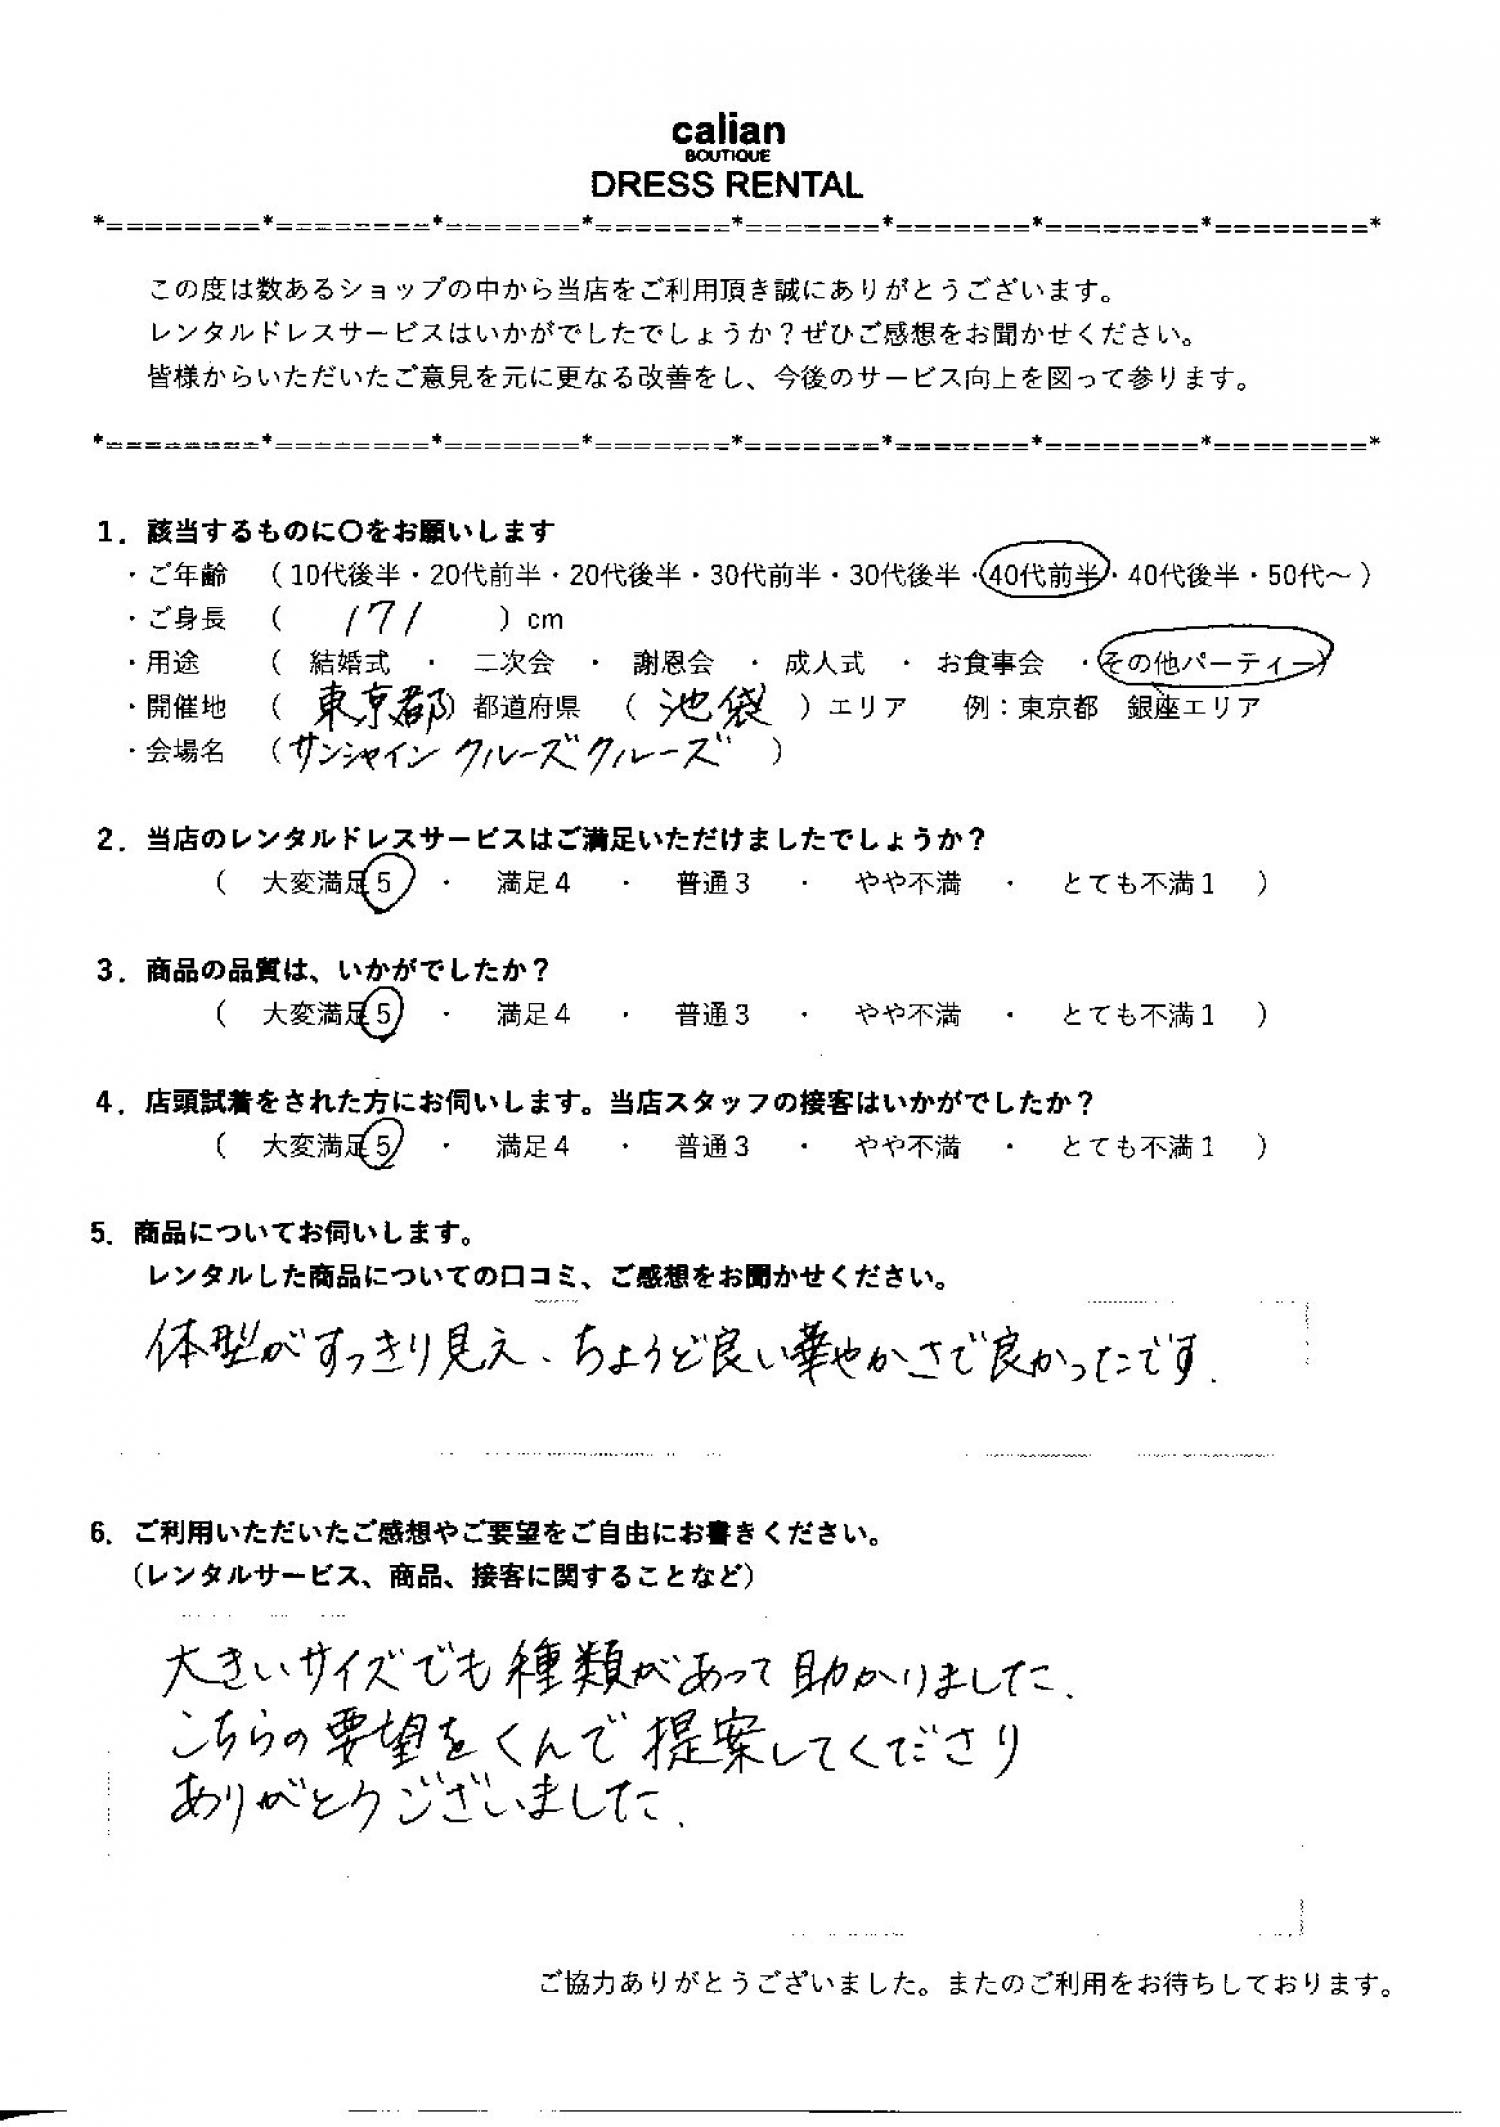 calian
BOUTIQUE
DRESS RENTAL
*=========*=========*========*========*========*========*=========*=========*
この度は数あるショップの中から当店をご利用頂き誠にありがとうございます。
レンタルドレスサービスはいかがでしたでしょうか？ぜひご感想をお聞かせください。
皆様からいただいたご意見を元に更なる改善をし、今後のサービス向上を図って参ります。
*=========*=========*========*========*========*========*=========*=========*
1．該当するものに〇をお願いします
・ご年齢 （10代後半・20代前半・20代後半・30代前半・30代後半・40代前半・40代後半・50代～）
・ご身長 （ 171 ）cm
・用途 （ 結婚式 ・ 二次会 ・ 謝恩会 ・ 成人式 ・ お食事会 ・その他パーティー）
・開催地 （ 東京都）都道府県 （ 池袋 ）エリア 例：東京都 銀座エリア
・会場名 （サンシャイン クルーズクルーズ ）
2．当店のレンタルドレスサービスはご満足いただけましたでしょうか？
（ 大変満足5 ・ 満足4 ・ 普通3 ・ やや不満 ・ とても不満1 ）
3．商品の品質は、いかがでしたか？
（ 大変満足5 ・ 満足4 ・ 普通3 ・ やや不満 ・ とても不満1 ）
4．店頭試着をされた方にお伺いします。当店スタッフの接客はいかがでしたか？
（ 大変満足5 ・ 満足4 ・ 普通3 ・ やや不満 ・ とても不満1 ）
5．商品についてお伺いします。
レンタルした商品についての口コミ、ご感想をお聞かせください。
体型がすっきり見え、ちょうど良い華やかさで良かったです.
6．ご利用いただいたご感想やご要望をご自由にお書きください。
（レンタルサービス、商品、接客に関することなど）
大きいサイズでも種類があって助かりました.
こちらの要望をくんで提案してくださり
ありがとうございました.
ご協力ありがとうございました。またのご利用をお待ちしております。